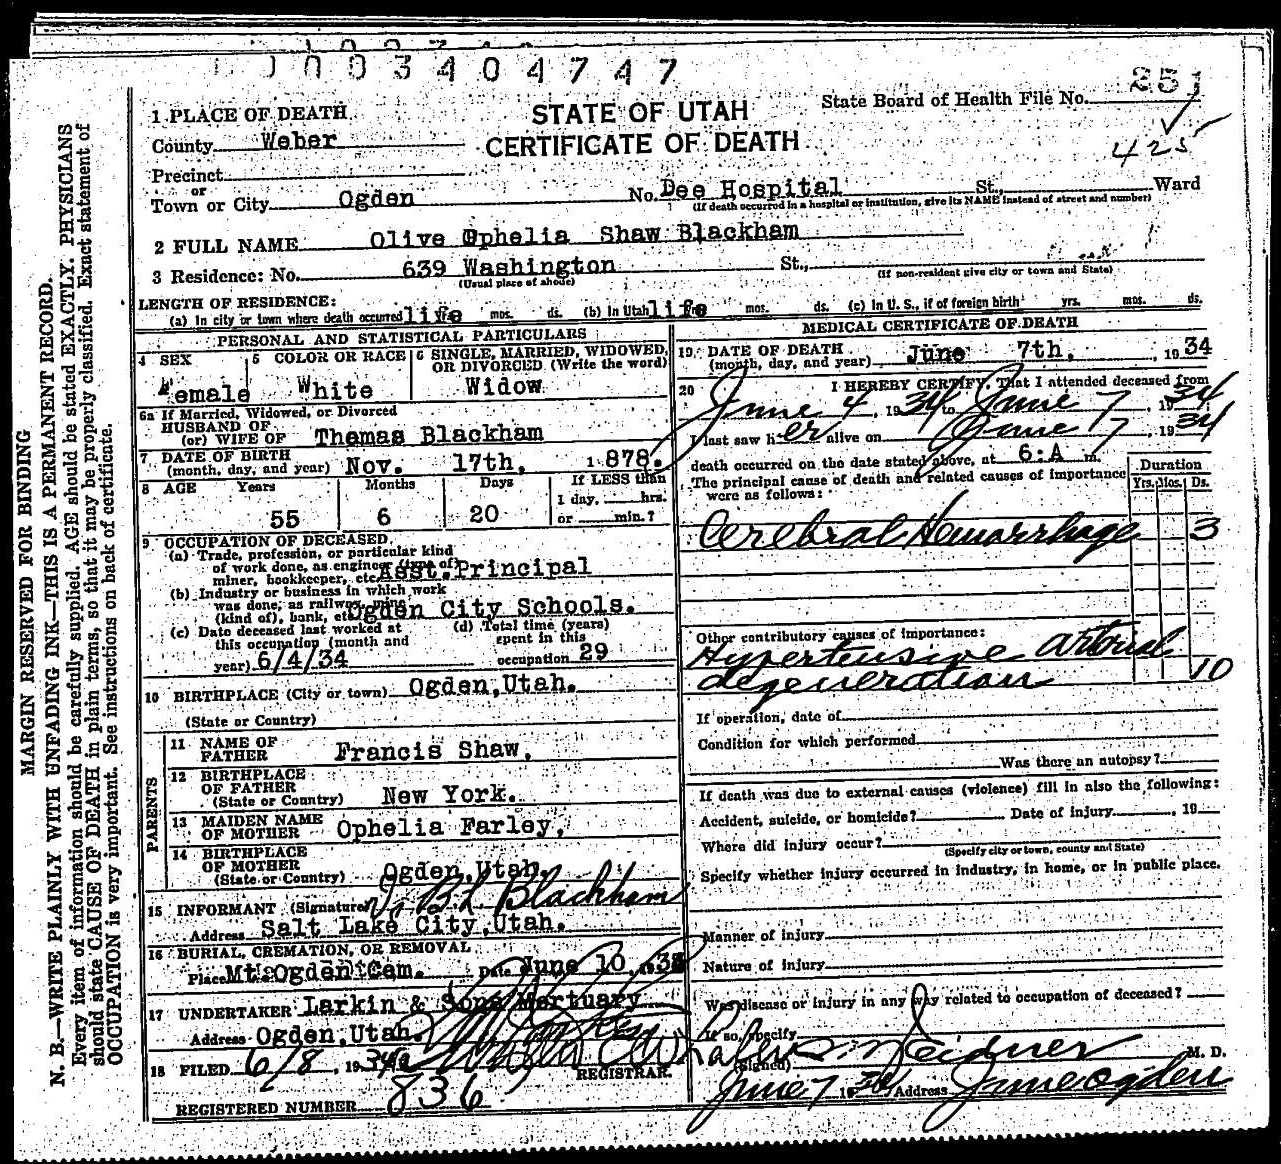 1003404747
STATE OF UTAH
CERTIFICATE OF DEATH
State Board of Health File No. 251
425
1 PLACE OF DEATH
County Weber
Precinct
or
Town or City Ogden No. Dee Hospital St., Ward
(If death occurred in a hospital or institution, give its NAME instead of street and number)
2 FULL NAME Olive Ophelia Shaw Blackham
3 Residence: No. 639 Washington St.,
(Usual place of abode) (If non-resident give city or town and State)
LENGTH OF RESIDENCE:
(a) In city or town where death occurred life yrs. mos. ds. (b) In Utah life yrs. mos. ds. (c) In U. S., if of foreign birth yrs. mos. ds.
PERSONAL AND STATISTICAL PARTICULARS
4 SEX Female
5 COLOR OR RACE White
6 SINGLE, MARRIED, WIDOWED, OR DIVORCED (Write the word) Widow
6a If Married, Widowed, or Divorced
HUSBAND OF
(or) WIFE OF Thomas Blackham
7 DATE OF BIRTH
(month, day, and year) Nov. 17th, 1878.
8 AGE Years 55 Months 6 Days 20 If LESS than
1 day, hrs.
or min.?
9 OCCUPATION OF DECEASED
(a) Trade, profession, or particular kind
of work done, as engineer (type of)
miner, bookkeeper, etc. Asst. Principal
(b) Industry or business in which work
was done, as railway, mine
(kind of), bank, etc. Ogden City Schools.
(c) Date deceased last worked at
this occupation (month and
year) 6/4/34
(d) Total time (years)
spent in this
occupation 29
10 BIRTHPLACE (City or town) Ogden, Utah.
(State or Country)
PARENTS
11 NAME OF
FATHER Francis Shaw.
12 BIRTHPLACE
OF FATHER
(State or Country) New York.
13 MAIDEN NAME
OF MOTHER Ophelia Farley,
14 BIRTHPLACE
OF MOTHER
(State or Country) Ogden, Utah.
15 INFORMANT (Signature) Blackham
Address Salt Lake City, Utah.
16 BURIAL, CREMATION, OR REMOVAL
Place Mt. Ogden Cem. Date June 10, 193
17 UNDERTAKER Larkin & Sons Mortuary
Address Ogden, Utah.
18 FILED 6/8, 1934
REGISTRAR.
REGISTERED NUMBER 836
MEDICAL CERTIFICATE OF DEATH
19 DATE OF DEATH
(month, day, and year) June 7th, 1934
20 I HEREBY CERTIFY, That I attended deceased from
June 4, 1934 to June 7, 1934
I last saw her alive on June 7, 1934
death occurred on the date stated above, at 6:A m.
The principal cause of death and related causes of importance
were as follows:
Duration
Yrs. Mos. Ds.
Cerebral Hemorrhage 3
Other contributory causes of importance:
Hypertensive arterial
degeneration 10
If operation, date of
Condition for which performed
Was there an autopsy?
If death was due to external causes (violence) fill in also the following:
Accident, suicide, or homicide? Date of injury , 19
Where did injury occur?
(Specify city or town, county and State)
Specify whether injury occurred in industry, in home, or in public place.
Manner of injury
Nature of injury
Was disease or injury in any way related to occupation of deceased?
If so, specify
(Signed) M. D.
June 7 1934 Address Ogden
MARGIN RESERVED FOR BINDING
N. B.—WRITE PLAINLY WITH UNFADING INK—THIS IS A PERMANENT RECORD.
Every item of information should be carefully supplied. AGE should be stated EXACTLY. PHYSICIANS
should state CAUSE OF DEATH in plain terms, so that it may be properly classified. Exact statement of
OCCUPATION is very important. See instructions on back of certificate.